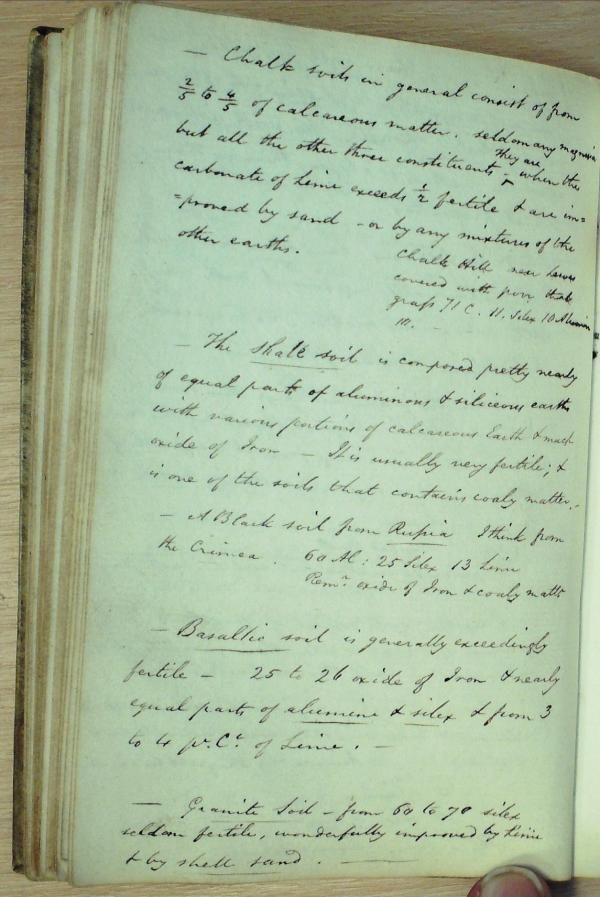 — Chalk soils in general consist of from
2/5 to 4/5 of calcareous matter. seldom any magnesia
but all the other three constituents - they are when the
carbonate of Lime exceeds 1/2 fertile & are im=
=proved by sand - or by any mixtures of the
other earths.
Chalk Hill near Lewes
covered with poor thick
grass 71 C. 11. Silex 10 Alumin
m. -
— The shale soil is composed pretty nearly
of equal parts of aluminous & siliceous earths
with various portions of calcareous Earth & much
oxide of Iron — It is usually very fertile; &
is one of the soils that contains coaly matter.
— A Black soil from Russia I think from
the Crimea. 60 Al: 25 Silex 13 Lime
Remr. oxide of Iron & coaly matter
— Basaltic soil is generally exceedingly
fertile — 25 to 26 oxide of Iron & nearly
equal parts of alumine & silex & from 3
to 4 pr. Ct. of Lime. —
— Granite Soil - from 60 to 70 silex
seldom fertile, wonderfully improved by Lime
& by shell sand. —